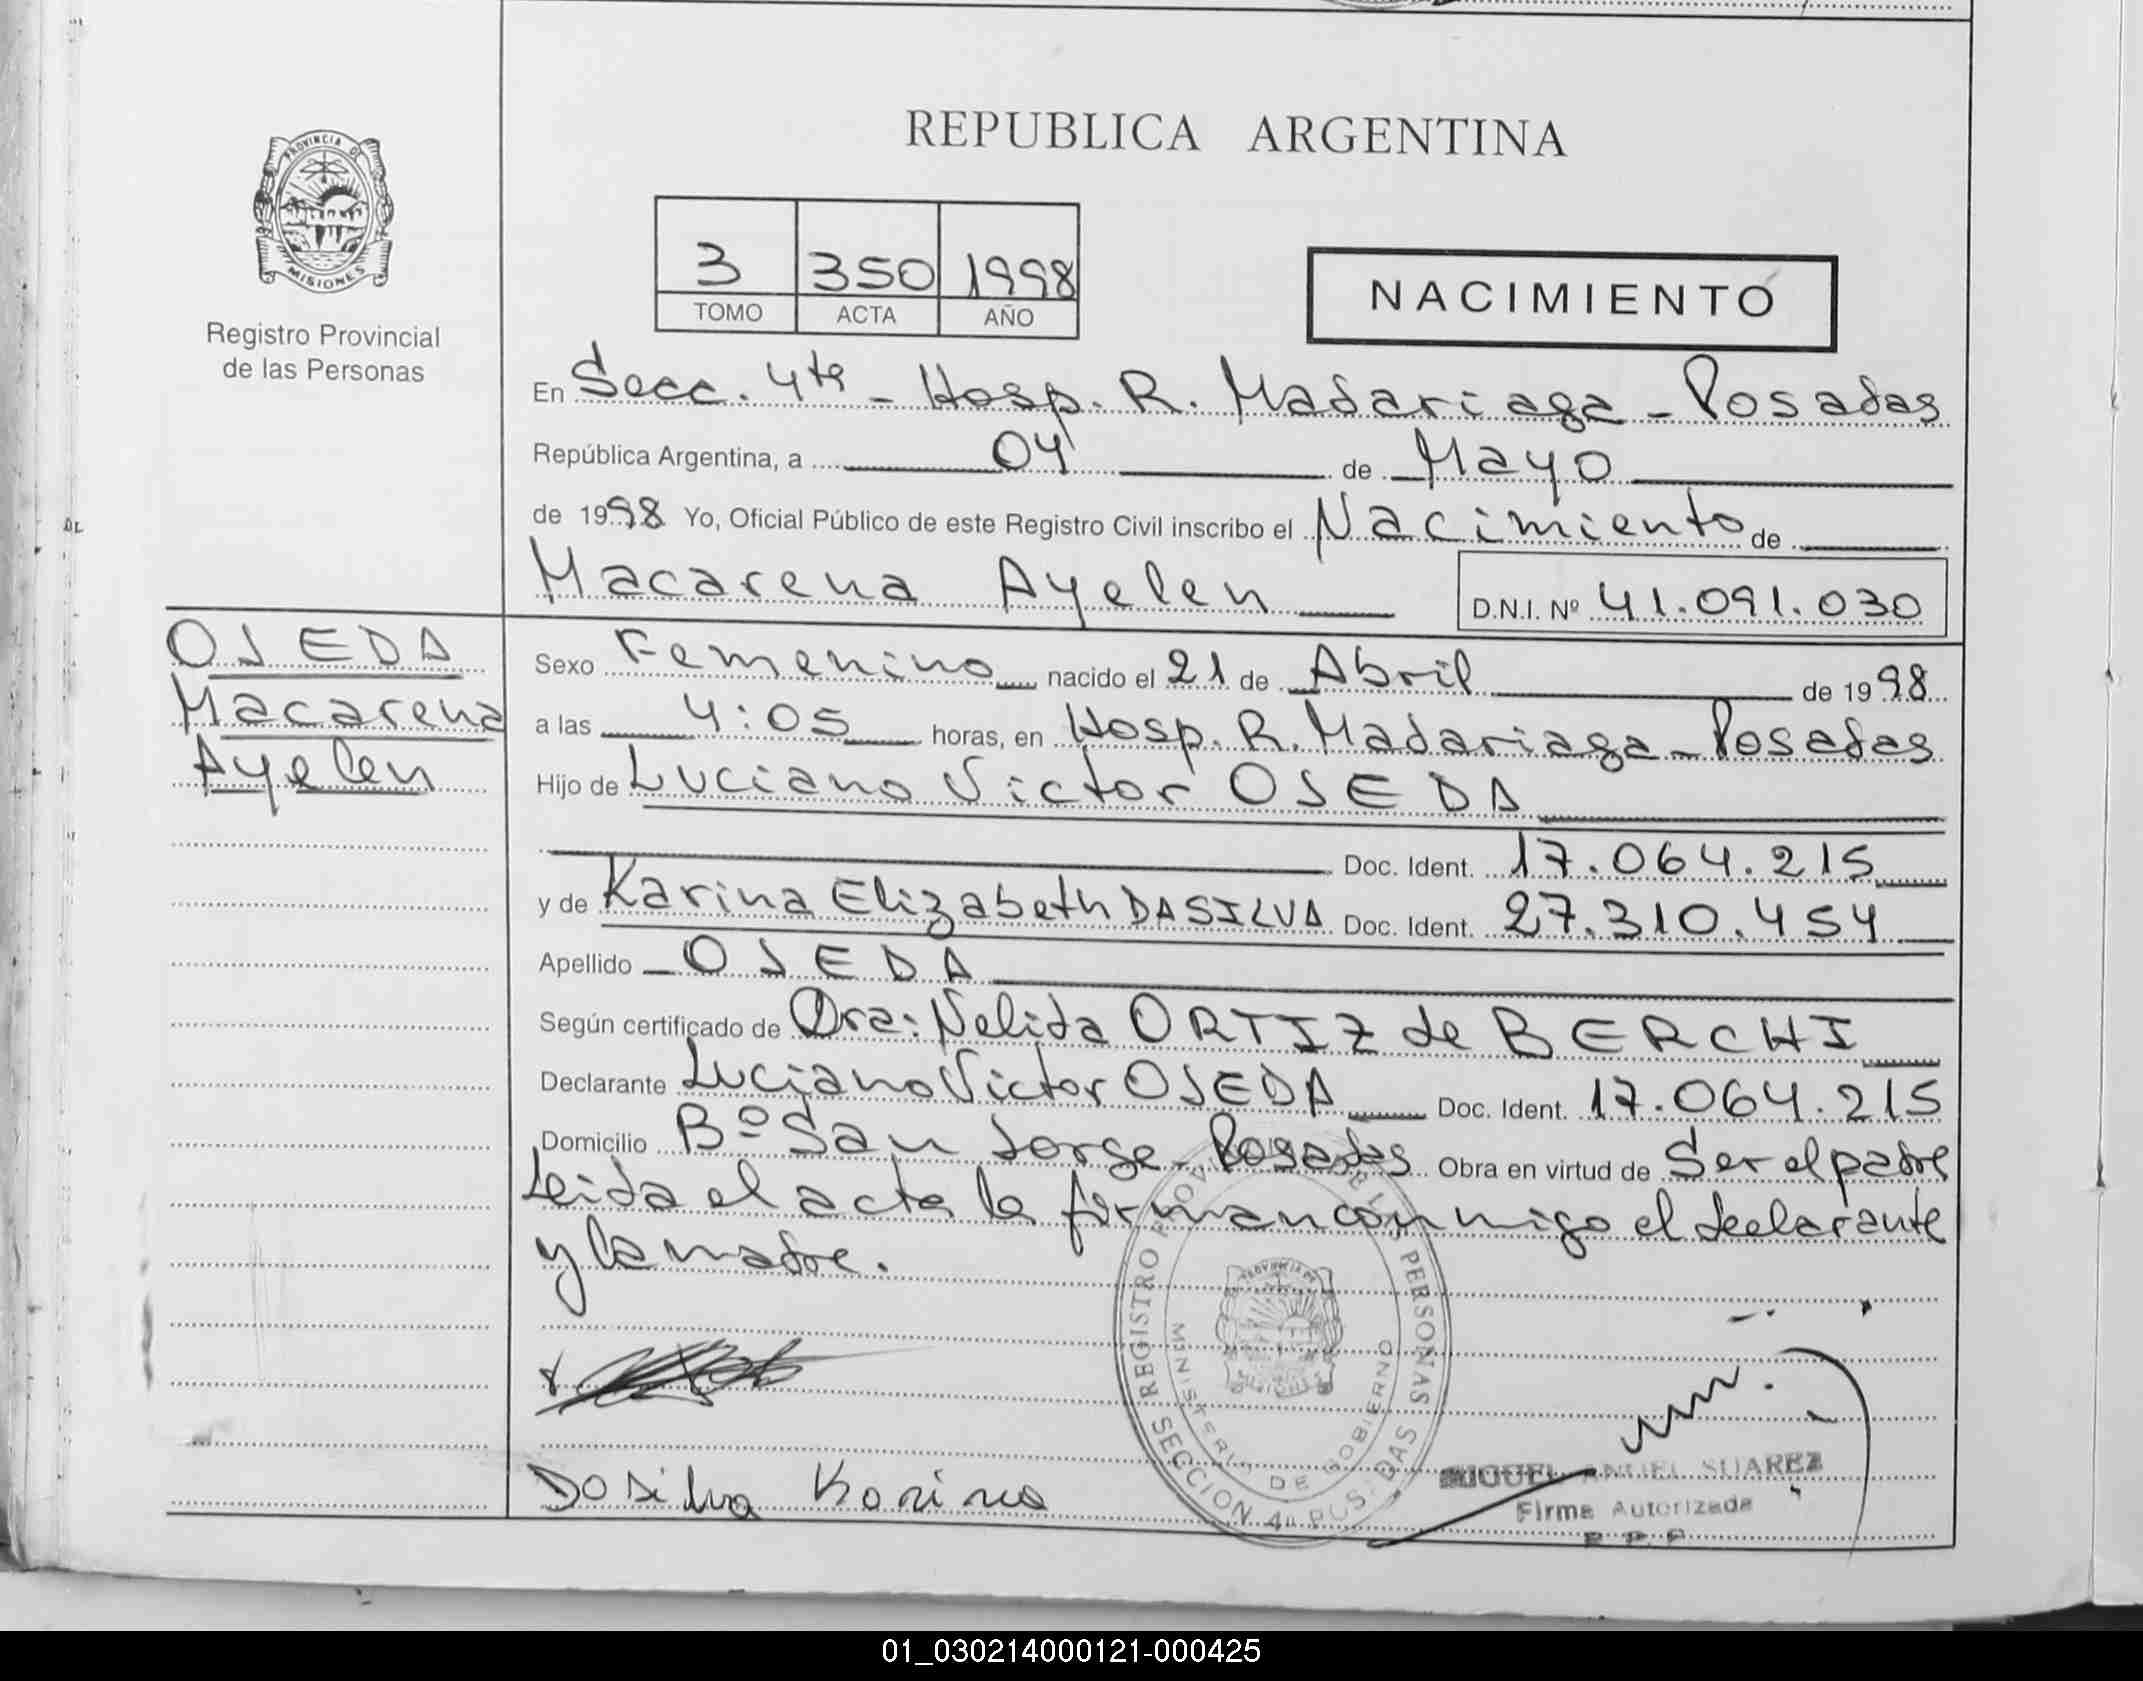 REPUBLICA ARGENTINA
PROVINCIA DE
MISIONES
Registro Provincial
de las Personas
3 350 1998
TOMO ACTA AÑO
NACIMIENTO
En Secc. 4ta - Hosp. R. Madariaga - Posadas
República Argentina, a 04 de Mayo
de 1998 Yo, Oficial Público de este Registro Civil inscribo el Nacimiento de
Macarena Ayelen D.N.I. Nº 41.091.030
OJEDA
Macarena
Ayelen
Sexo Femenino nacido el 21 de Abril de 1998
a las 4:05 horas, en Hosp. R. Madariaga - Posadas
Hijo de Luciano Victor OJEDA
Doc. Ident. 17.064.215
y de Karina Elizabeth DASILVA Doc. Ident. 27.310.454
Apellido OJEDA
Según certificado de Dra: Nelida ORTIZ de BERCHI
Declarante Luciano Victor OJEDA Doc. Ident. 17.064.215
Domicilio Bº San Jorge - Posadas Obra en virtud de Ser el padre
Leida el acta la firman conmigo el declarante
y la madre.
REGISTRO PROV. DE LAS PERSONAS
MINISTERIO DE GOBIERNO
SECCION 4a POSADAS
Dasilva Karina
MIGUEL ANGEL SUAREZ
Firma Autorizada
R. P. P.
01_030214000121-000425